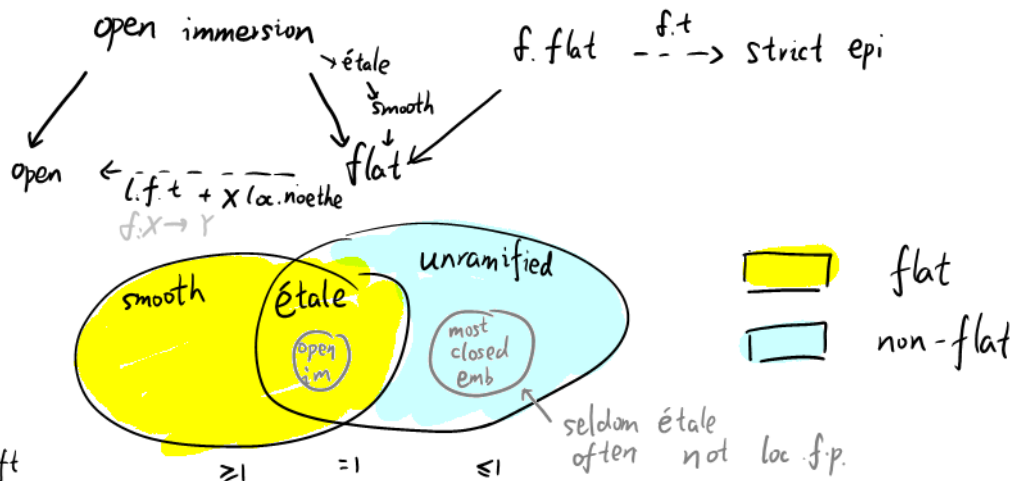 open immersion
étale
smooth
f. flat
f.t
strict epi
open
flat
l.f.t + X loc.noethe
f:X→Y
smooth
étale
unramified
open
im
most
closed
emb
flat
non-flat
seldom étale
often not loc.f.p.
ft
≥1
=1
≤1